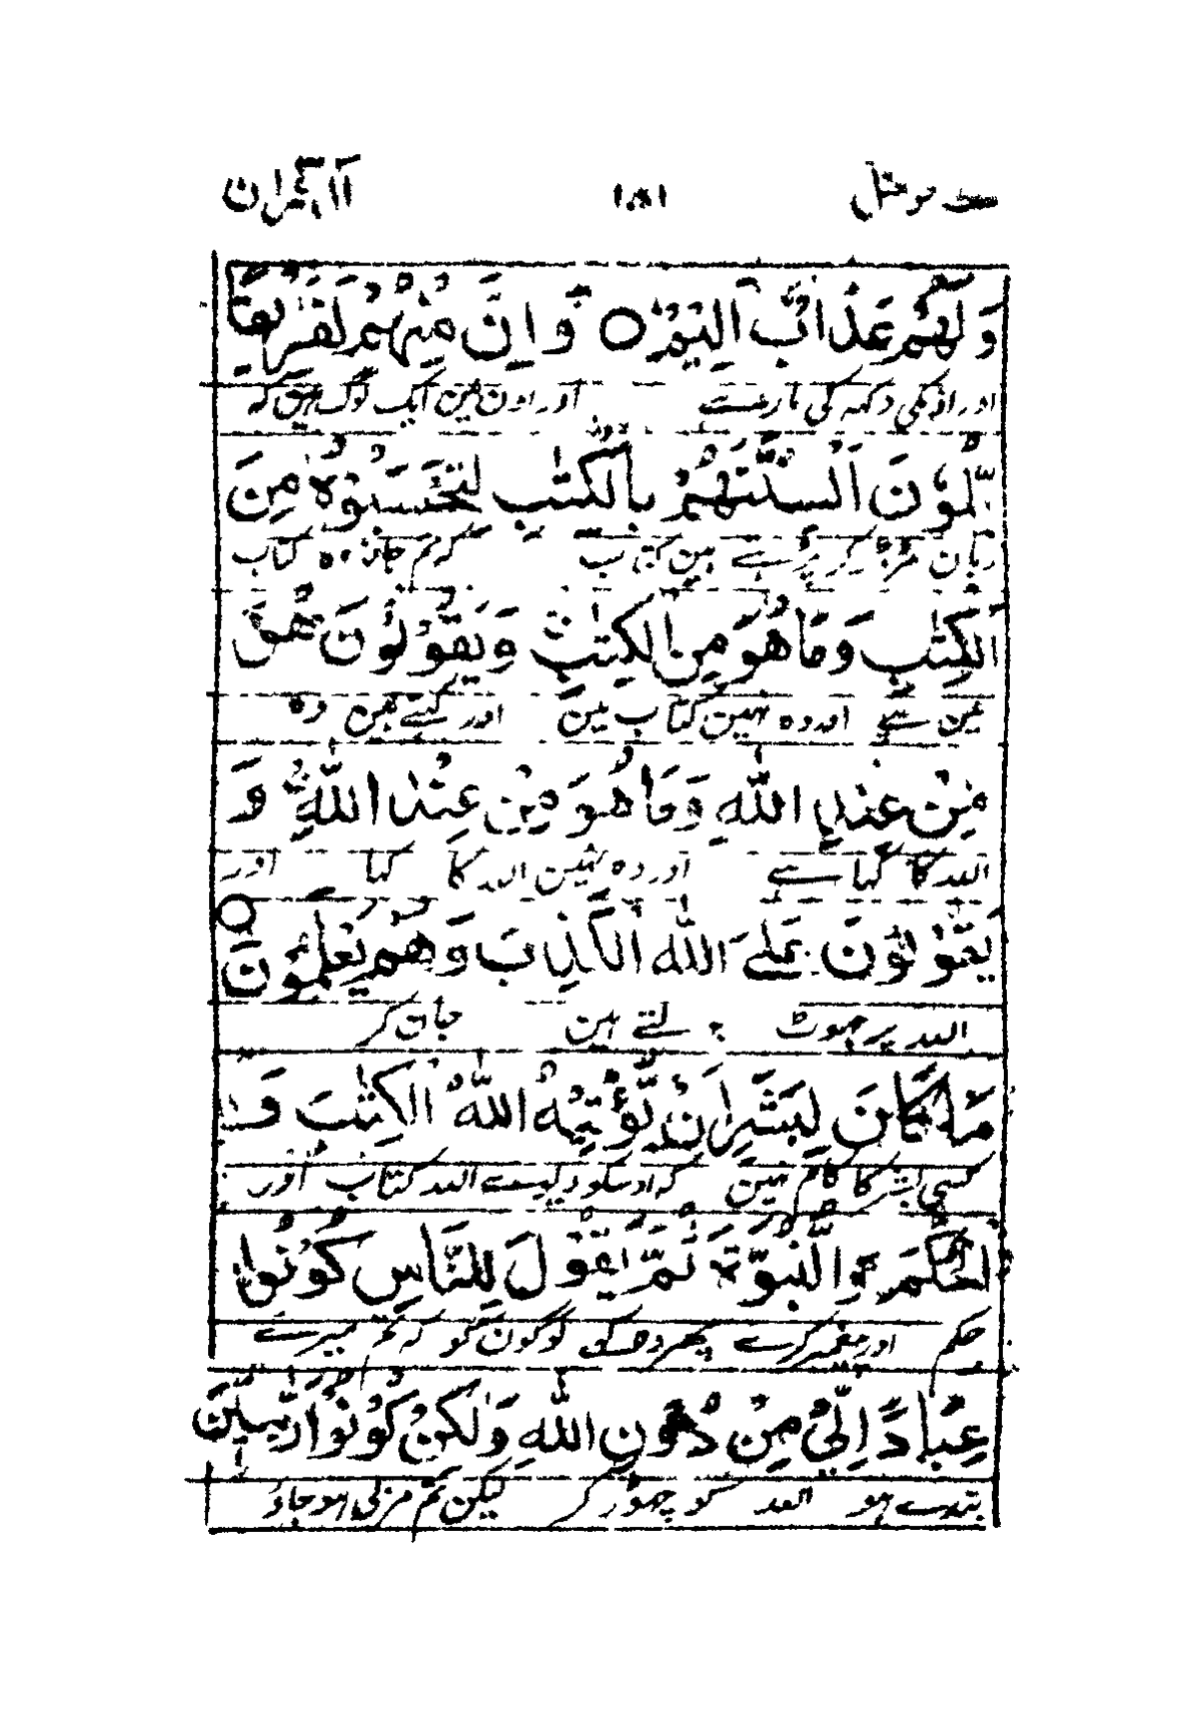 تلك الرسل ١٠١ آل عمران
وَلَهُمْ عَذَابٌ اَلِيْمٌ ○ وَاِنَّ مِنْهُمْ لَفَرِيْقًا
اور اونکو دکھہ کی مار ہے اور اون مین ایک لوگ ہین کہ
يَّلْوٗنَ اَلْسِنَتَهُمْ بِالْكِتٰبِ لِتَحْسَبُوْهُ مِنَ
زبان مڑوڑ کر پڑہتے ہین کتاب کہ تم جانو وہ کتاب
الْكِتٰبِ وَمَا هُوَ مِنَ الْكِتٰبِ وَيَقُوْلُوْنَ هُوَ
مین ہے اور وہ نہین کتاب مین اور کہتے ہین وہ
مِنْ عِنْدِ اللّٰهِ وَمَا هُوَ مِنْ عِنْدِ اللّٰهِ وَ
اللہ کا کہا ہے اور وہ نہین اللہ کا کہا اور
يَقُوْلُوْنَ عَلَى اللّٰهِ الْكَذِبَ وَهُمْ يَعْلَمُوْنَ ○
اللہ پر جہوٹ بولتے ہین جان کر
مَا كَانَ لِبَشَرٍ اَنْ يُّؤْتِيَهُ اللّٰهُ الْكِتٰبَ وَ
کسی بشر کا کام نہین کہ اوسکو دیوے اللہ کتاب اور
الْحُكْمَ وَالنُّبُوَّةَ ثُمَّ يَقُوْلَ لِلنَّاسِ كُوْنُوْا
حکم اور پیغمبر کرے پھر وہ کہے لوگون کو کہ تم میرے
عِبَادًا لِّيْ مِنْ دُوْنِ اللّٰهِ وَلٰكِنْ كُوْنُوْا رَبّٰنِيّٖنَ
بندے ہو اللہ کو چھوڑ کر لیکن تم مربی ہو جاؤ